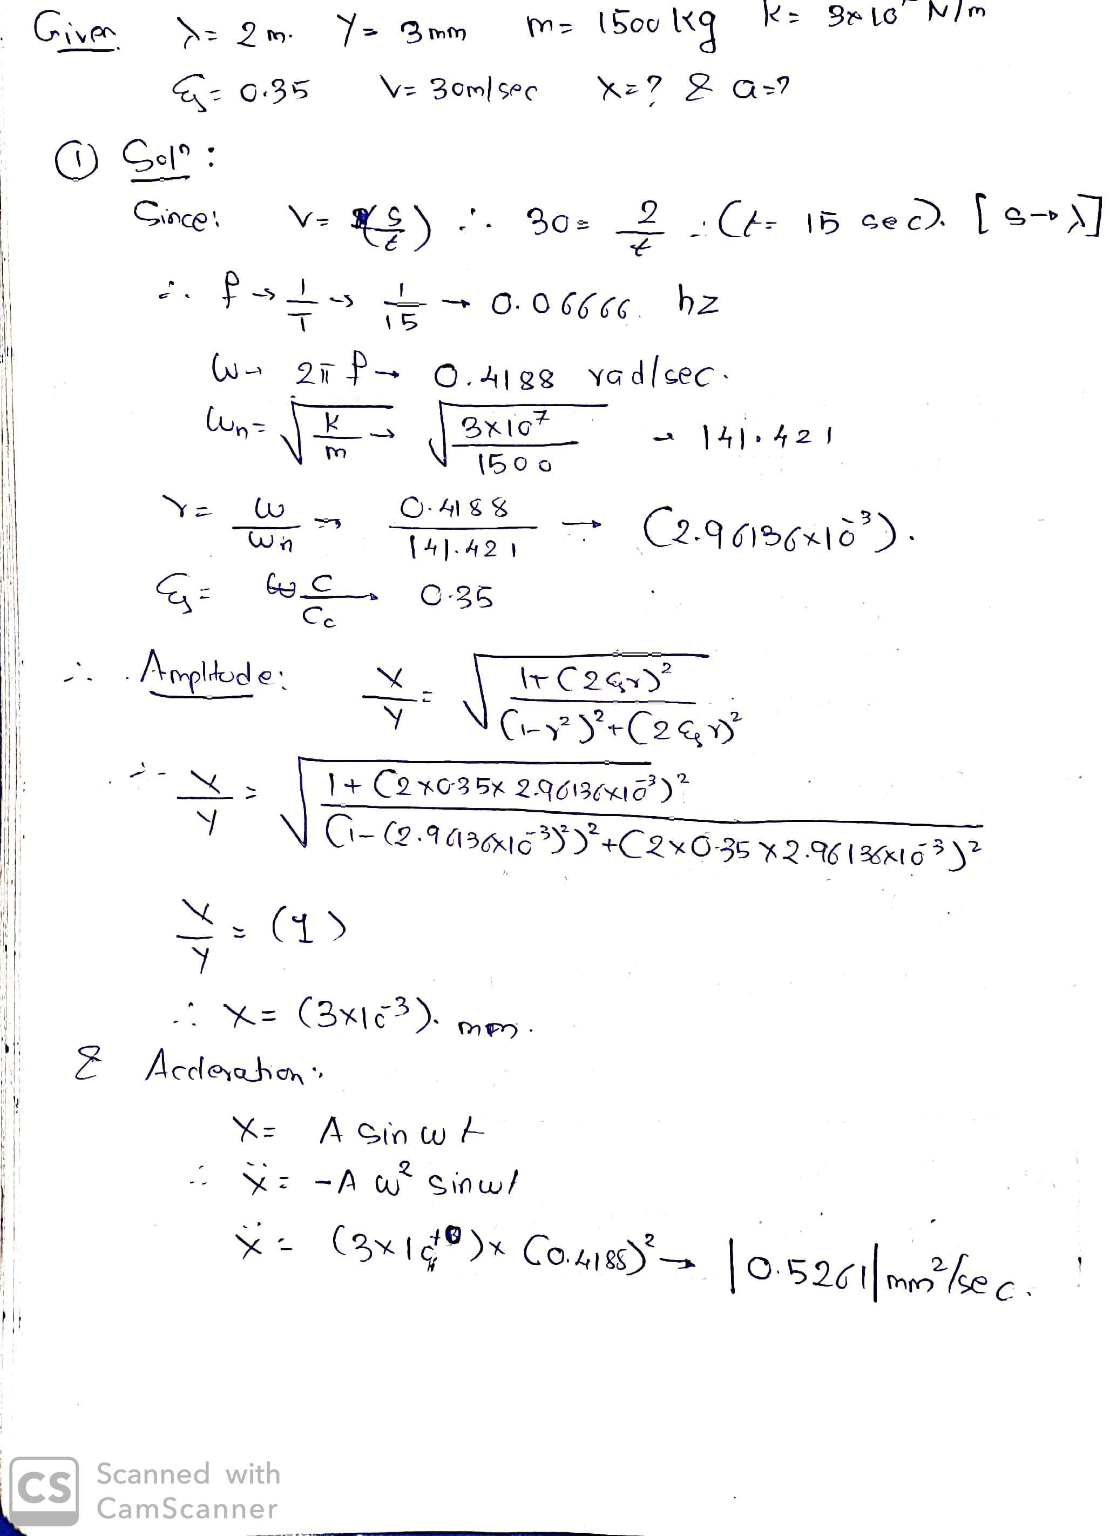 Given λ= 2 m. Y= 3 mm m= 1500 kg K= 3×10 N/m
ξ= 0.35 V= 30m/sec X=? & a=?
① Solⁿ :
Since: V= (s/t) ∴ 30= 2/t ∴ (t= 15 sec). [s→λ]
∴ f → 1/T → 1/15 → 0.06666. hz
ω→ 2π f → 0.4188 rad/sec.
ωn= √(K/m) → √(3×10^7/1500) → 141.421
r= ω/ωn → 0.4188/141.421 → (2.96136×10^-3).
ξ= C/Cc → 0.35
∴ Amplitude: X/Y = √((1+(2ξr)²)/((1-r²)²+(2ξr)²))
∴ X/Y = √((1+(2×0.35×2.96136×10^-3)²)/((1-(2.96136×10^-3)²)²+(2×0.35×2.96136×10^-3)²))
X/Y = (1)
∴ X= (3×10^-3). mm.
& Accleration:
X= A sin ωt
∴ Ẍ= -A ω² sinωt
Ẍ= (3×10^+0)×(0.4188)² → |0.5261| mm²/sec.
CS Scanned with
CamScanner